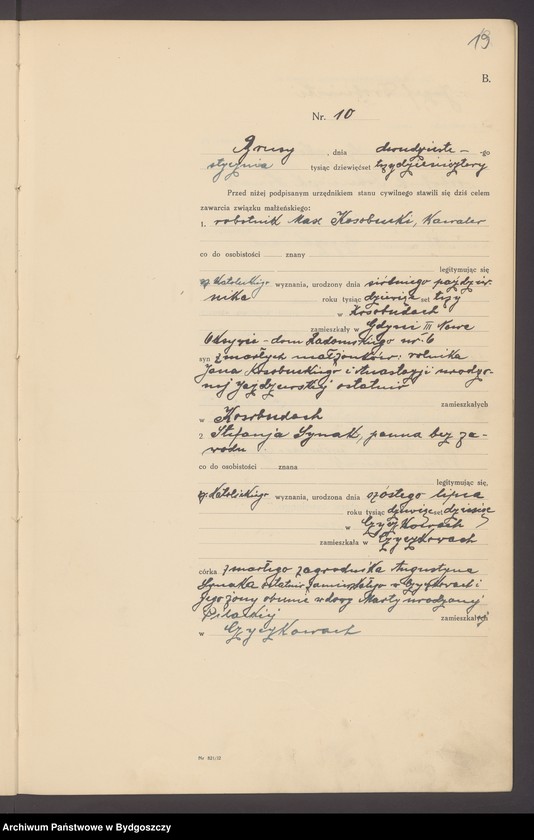 19
B.
Nr. 10
Brusy, dnia dwudzieste-go
stycznia tysiąc dziewięćset trzydzieści cztery
Przed niżej podpisanym urzędnikiem stanu cywilnego stawili się dziś celem
zawarcia związku małżeńskiego:
1. robotnik Max Kosobucki, kawaler
co do osobistości znany
legitymując się
rz. katolickiego wyznania, urodzony dnia siódmego paździer-
nika roku tysiąc dziewięćset trzy
w Kosobudach
zamieszkały w Gdyni III Nowe
Obłuże - dom Radomskiego nr. 6
syn zmarłych małżonków: rolnika
Jana Kosobuckiego i Anastazji urodzo-
nej ostatnio
zamieszkałych
w Kosobudach
2. Stefanja Synak, panna bez za-
wodu
co do osobistości znana
legitymując się,
rz. katolickiego wyznania, urodzona dnia szóstego lipca
roku tysiąc dziewięćset dziesięć
w Czyczkowach
zamieszkała w Czyczkowach
córka zmarłego zagrodnika Augustyna
Synaka ostatnio zamieszkałego w Czyczkowach i
jego żony obecnie wdowy Marty urodzonej
zamieszkałej
w Czyczkowach
Nr 821/32
Archiwum Państwowe w Bydgoszczy